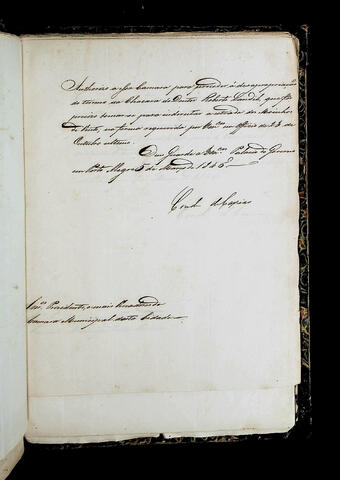 Authoriso a essa Camara para proceder á desapropriação
do terreno na Chacara do Doutor Roberto Landel, que for
preciso tomar-se para endireitar a estrada do Moinho
de Vento, na forma requerida por Vm.ces em Officio de 23 de
Outubro ultimo.
Deos Guarde a Vm.ces Palacio do Governo
em Porto Alegre 5 de Março de 1846.
Conde de Caxias
Snr.es Presidente, e mais Vereadores da
Camara Municipal desta Cidade